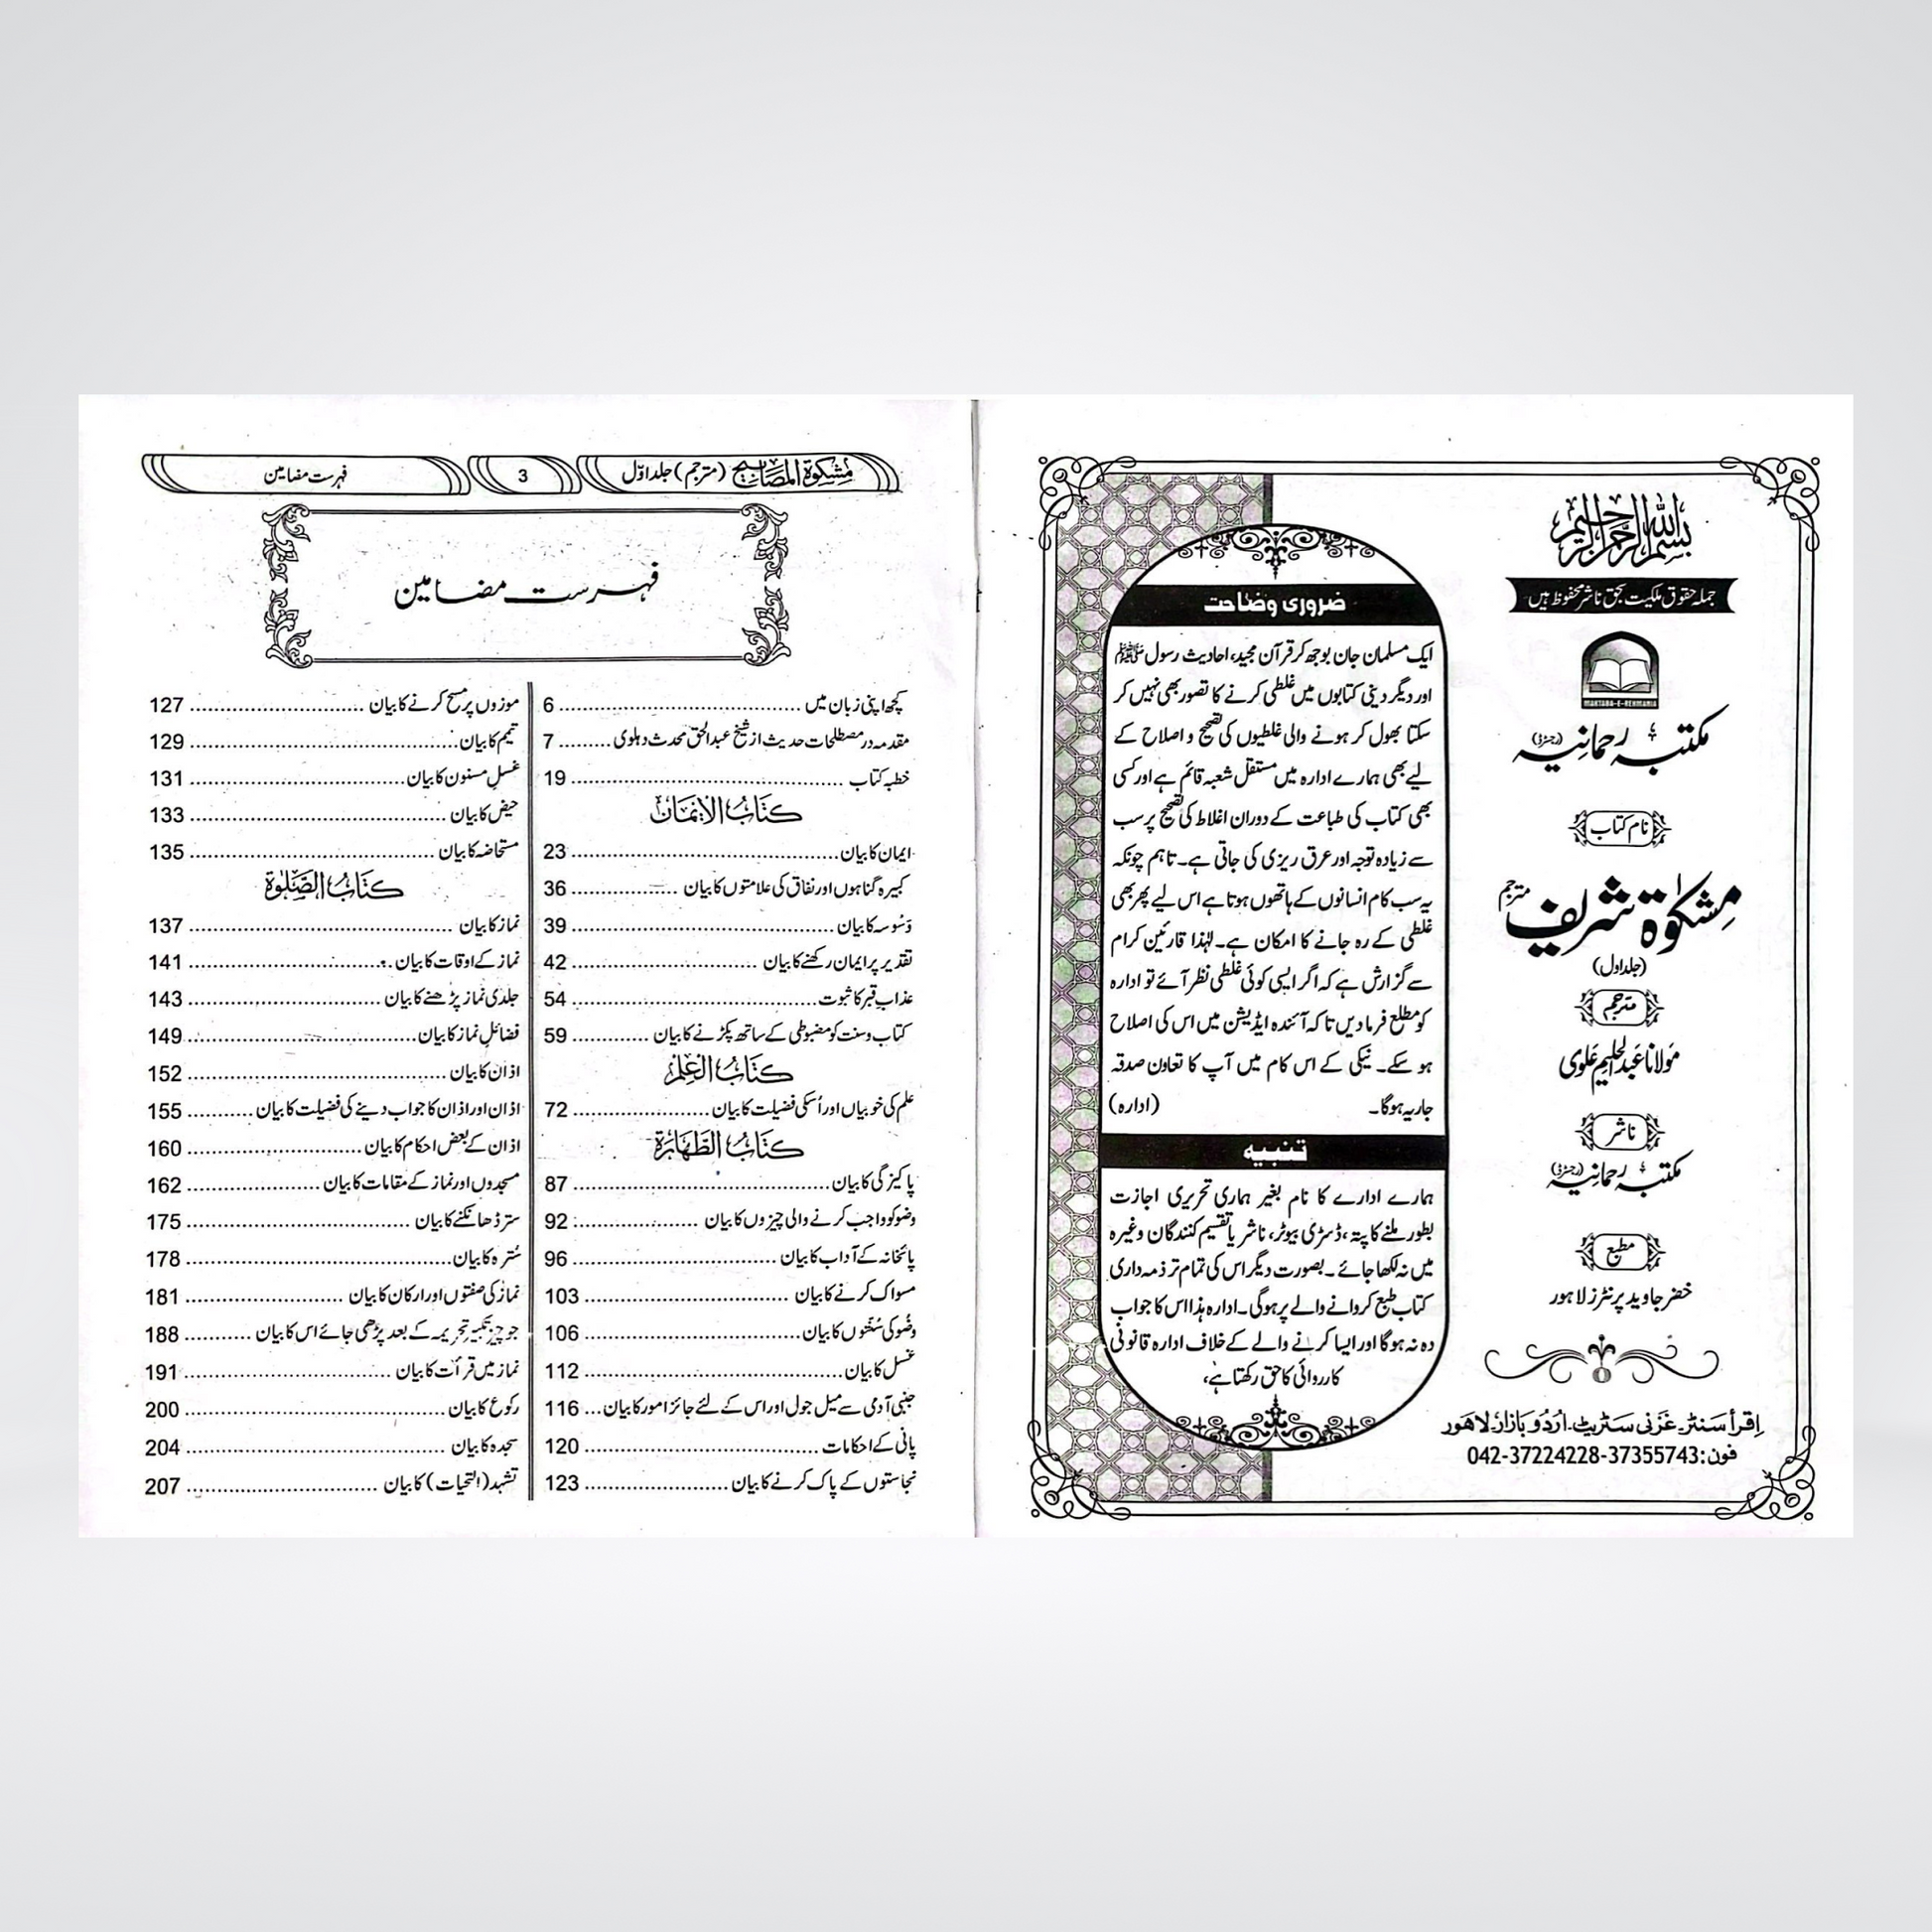 بسم الله الرحمن الرحيم
جملہ حقوق ملکیت بحق ناشر محفوظ ہیں
MAKTABA-E-REHMANIA
مکتبہ رحمانیہ (رجسٹرڈ)
نام کتاب
مشکوٰۃ شریف مترجم
(جلد اول)
مترجم
مولانا عبد الحلیم علوی
ناشر
مکتبہ رحمانیہ (رجسٹرڈ)
مطبع
خضر جاوید پرنٹرز لاہور
اقرأ سنٹر۔ غزنی سٹریٹ۔ اُردُو بازار۔ لاهور
فون: 042-37224228-37355743
ضروری وضاحت
ایک مسلمان جان بوجھ کر قرآن مجید، احادیث رسول ﷺ
اور دیگر دینی کتابوں میں غلطی کرنے کا تصور بھی نہیں کر
سکتا بھول کر ہونے والی غلطیوں کی تصحیح و اصلاح کے
لیے بھی ہمارے ادارہ میں مستقل شعبہ قائم ہے اور کسی
بھی کتاب کی طباعت کے دوران اغلاط کی تصحیح پر سب
سے زیادہ توجہ اور عرق ریزی کی جاتی ہے۔ تاہم چونکہ
یہ سب کام انسانوں کے ہاتھوں ہوتا ہے اس لیے پھر بھی
غلطی کے رہ جانے کا امکان ہے۔ لہٰذا قارئین کرام
سے گزارش ہے کہ اگر ایسی کوئی غلطی نظر آئے تو ادارہ
کو مطلع فرما دیں تاکہ آئندہ ایڈیشن میں اس کی اصلاح
ہو سکے۔ نیکی کے اس کام میں آپ کا تعاون صدقہ
جاریہ ہوگا۔ (ادارہ)
تنبیہ
ہمارے ادارے کا نام بغیر ہماری تحریری اجازت
بطور ملنے کا پتہ، ڈسٹری بیوٹر، ناشر یا تقسیم کنندگان وغیرہ
میں نہ لکھا جائے۔ بصورت دیگر اس کی تمام تر ذمہ داری
کتاب طبع کروانے والے پر ہوگی۔ ادارہ ہذا اس کا جواب
دہ نہ ہوگا اور ایسا کرنے والے کے خلاف ادارہ قانونی
کارروائی کا حق رکھتا ہے،
مشکوة المصابیح (مترجم) جلد اوّل
3
فہرست مضامین
فہرست مضامین
کچھ اپنی زبان میں ... 6
مقدمہ در مصطلحات حدیث از شیخ عبد الحق محدث دہلوی ... 7
خطبہ کتاب ... 19
کتاب الایمان
ایمان کا بیان ... 23
کبیرہ گناہوں اور نفاق کی علامتوں کا بیان ... 36
وَسْوسہ کا بیان ... 39
تقدیر پر ایمان رکھنے کا بیان ... 42
عذابِ قبر کا ثبوت ... 54
کتاب و سنت کو مضبوطی کے ساتھ پکڑنے کا بیان ... 59
کتاب العلم
علم کی خوبیاں اور اُسکی فضیلت کا بیان ... 72
کتاب الطهارة
پاکیزگی کا بیان ... 87
وضو کو واجب کرنے والی چیزوں کا بیان ... 92
پائخانہ کے آداب کا بیان ... 96
مسواک کرنے کا بیان ... 103
وضُو کی سُنّتوں کا بیان ... 106
غسل کا بیان ... 112
جنبی آدمی سے میل جول اور اس کے لئے جائز امور کا بیان ... 116
پانی کے احکامات ... 120
نجاستوں کے پاک کرنے کا بیان ... 123
موزوں پر مسح کرنے کا بیان ... 127
تیمم کا بیان ... 129
غسلِ مسنون کا بیان ... 131
حیض کا بیان ... 133
مستحاضہ کا بیان ... 135
کتاب الصلوة
نماز کا بیان ... 137
نماز کے اوقات کا بیان ... 141
جلدی نماز پڑھنے کا بیان ... 143
فضائلِ نماز کا بیان ... 149
اذان کا بیان ... 152
اذان اور اذان کا جواب دینے کی فضیلت کا بیان ... 155
اذان کے بعض احکام کا بیان ... 160
مسجدوں اور نماز کے مقامات کا بیان ... 162
ستر ڈھانکنے کا بیان ... 175
سُترہ کا بیان ... 178
نماز کی صفتوں اور ارکان کا بیان ... 181
جو چیز تکبیر تحریمہ کے بعد پڑھی جائے اس کا بیان ... 188
نماز میں قرأت کا بیان ... 191
رکوع کا بیان ... 200
سجدہ کا بیان ... 204
تشہد (التحیات) کا بیان ... 207